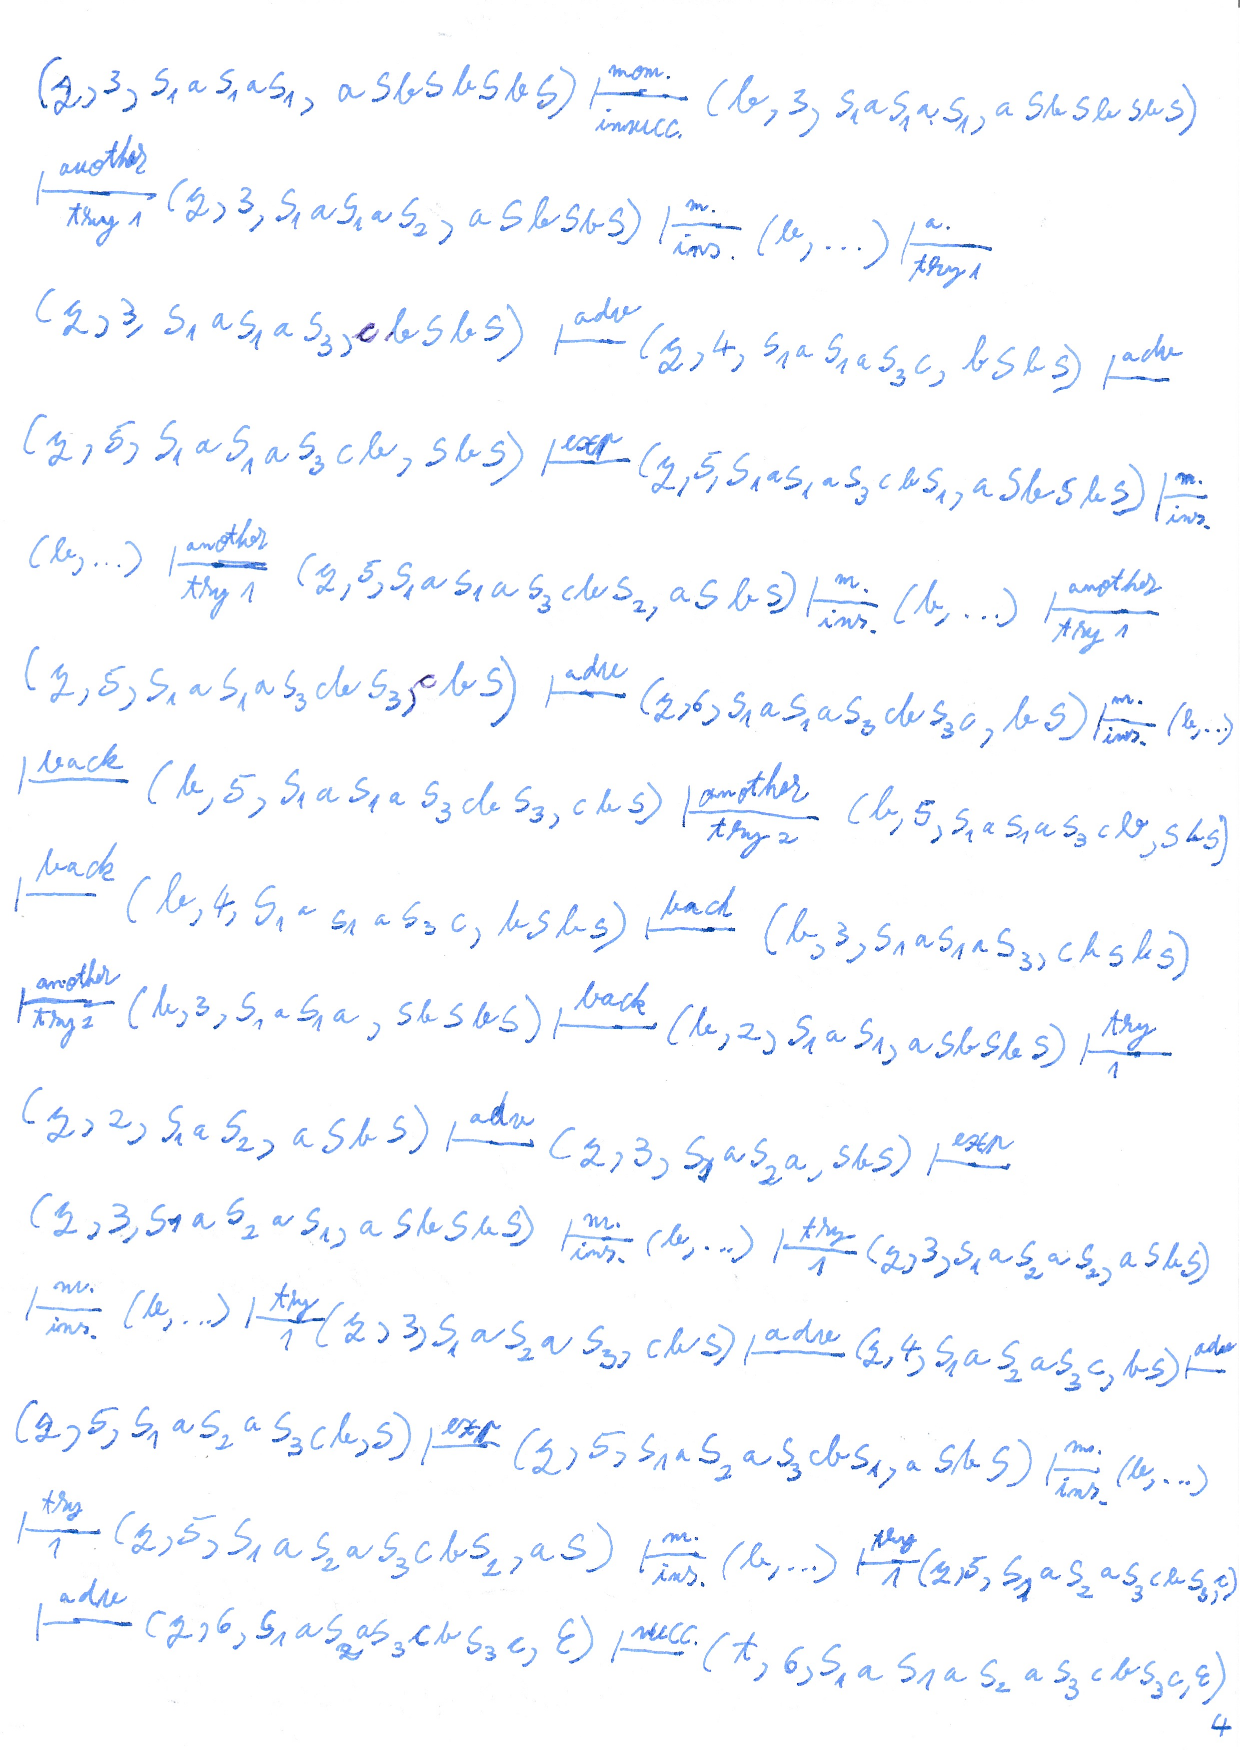 (q, 3, S₁aS₁aS₁, aSbSbSbS) |mom. insucc. (b, 3, S₁aS₁aS₁, aSbSbSbS)
|another try 1 (q, 3, S₁aS₁aS₂, aSbSbS) |m. ins. (b, ...) |a. try 1
(q, 3, S₁aS₁aS₃, cbSbS) |adv (q, 4, S₁aS₁aS₃c, bSbS) |adv
(q, 5, S₁aS₁aS₃cb, SbS) |exp (q, 5, S₁aS₁aS₃cbS₁, aSbSbS) |m. ins.
(b, ...) |another try 1 (q, 5, S₁aS₁aS₃cbS₂, aSbS) |m. ins. (b, ...) |another try 1
(q, 5, S₁aS₁aS₃cbS₃, cbS) |adv (q, 6, S₁aS₁aS₃cbS₃c, bS) |m. ins. (b, ...)
|back (b, 5, S₁aS₁aS₃cbS₃, cbS) |another try 2 (b, 5, S₁aS₁aS₃cb, SbS)
|back (b, 4, S₁aS₁aS₃c, bSbS) |back (b, 3, S₁aS₁aS₃, cbSbS)
|another try 2 (b, 3, S₁aS₁a, SbSbS) |back (b, 2, S₁aS₁, aSbSbS) |try 1
(q, 2, S₁aS₂, aSbS) |adv (q, 3, S₁aS₂a, SbS) |exp
(q, 3, S₁aS₂aS₁, aSbSbS) |m. ins. (b, ...) |try 1 (q, 3, S₁aS₂aS₂, aSbS)
|m. ins. (b, ...) |try 1 (q, 3, S₁aS₂aS₃, cbS) |adv (q, 4, S₁aS₂aS₃c, bS) |adv
(q, 5, S₁aS₂aS₃cb, S) |exp (q, 5, S₁aS₂aS₃cbS₁, aSbS) |m. ins. (b, ...)
|try 1 (q, 5, S₁aS₂aS₃cbS₂, aS) |m. ins. (b, ...) |try 1 (q, 5, S₁aS₂aS₃cbS₃, c)
|adv (q, 6, S₁aS₂aS₃cbS₃c, ε) |succ. (t, 6, S₁aS₁aS₂aS₃cbS₃c, ε)
4